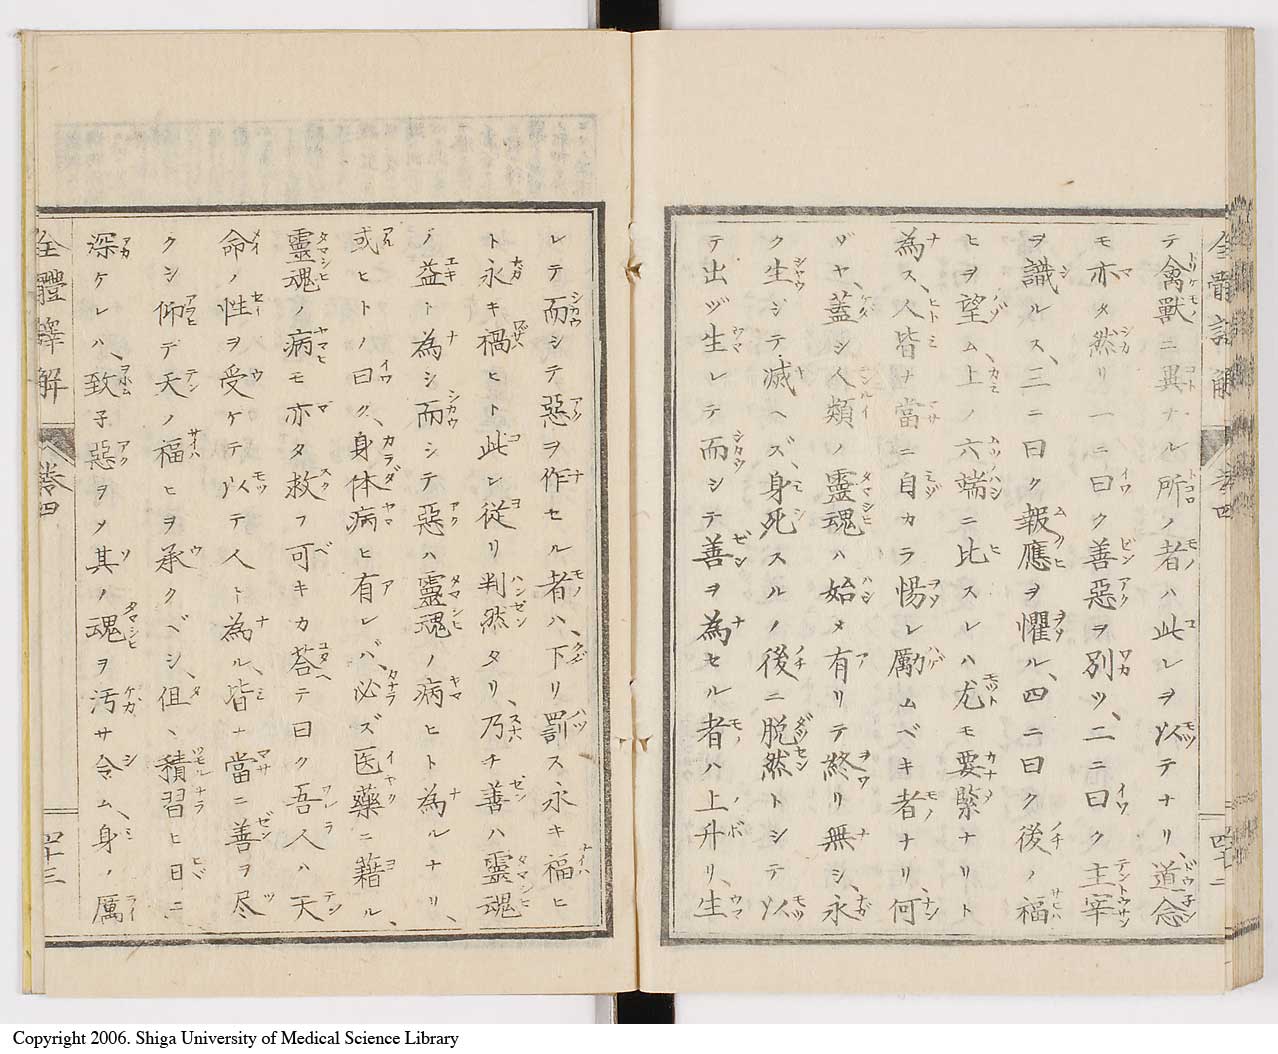 テ禽獸ニ異ナル所ノ者ハ此レヲ以テナリ、道念
モ亦タ然リ一ニ曰ク善惡ヲ別ツ、二ニ曰ク主宰
ヲ識ルス、三ニ曰ク報應ヲ懼ル、四ニ曰ク後ノ福
ヒヲ望ム、上ノ六端ニ比スレハ尤モ要緊ナリト
為ス、人皆ナ當ニ自カラ惕レ勵ムベキ者ナリ、何
ゾヤ、蓋シ人類ノ靈魂ハ始メ有リテ終リ無シ、永
ク生シテ滅ヘズ、身死スルノ後ニ脱然トシテ以
テ出ヅ生レテ而シテ善ヲ為セル者ハ上升リ、生
レテ而シテ惡ヲ作セル者ハ、下リ罰ス、永キ福ヒ
ト永キ禍ヒト此レ従リ判然タリ、乃チ善ハ靈魂
ノ益ト為シ而シテ惡ハ靈魂ノ病ヒト為ルナリ、
或ヒトノ曰ク、身体病ヒ有レバ、必ズ医藥ニ藉ル、
靈魂ノ病モ亦タ救フ可キカ荅テ曰ク吾人ハ天
命ノ性ヲ受ケテ以テ人ト為ル、皆ナ當ニ善ヲ尽
クシ仰デ天ノ福ヒヲ承クベシ、但、積習ヒ日ニ
深ケレハ、致子惡ヲメ其ノ魂ヲ汚サ令ム、身ノ厲
全體譯解 巻四 四十三
Copyright 2006. Shiga University of Medical Science Library